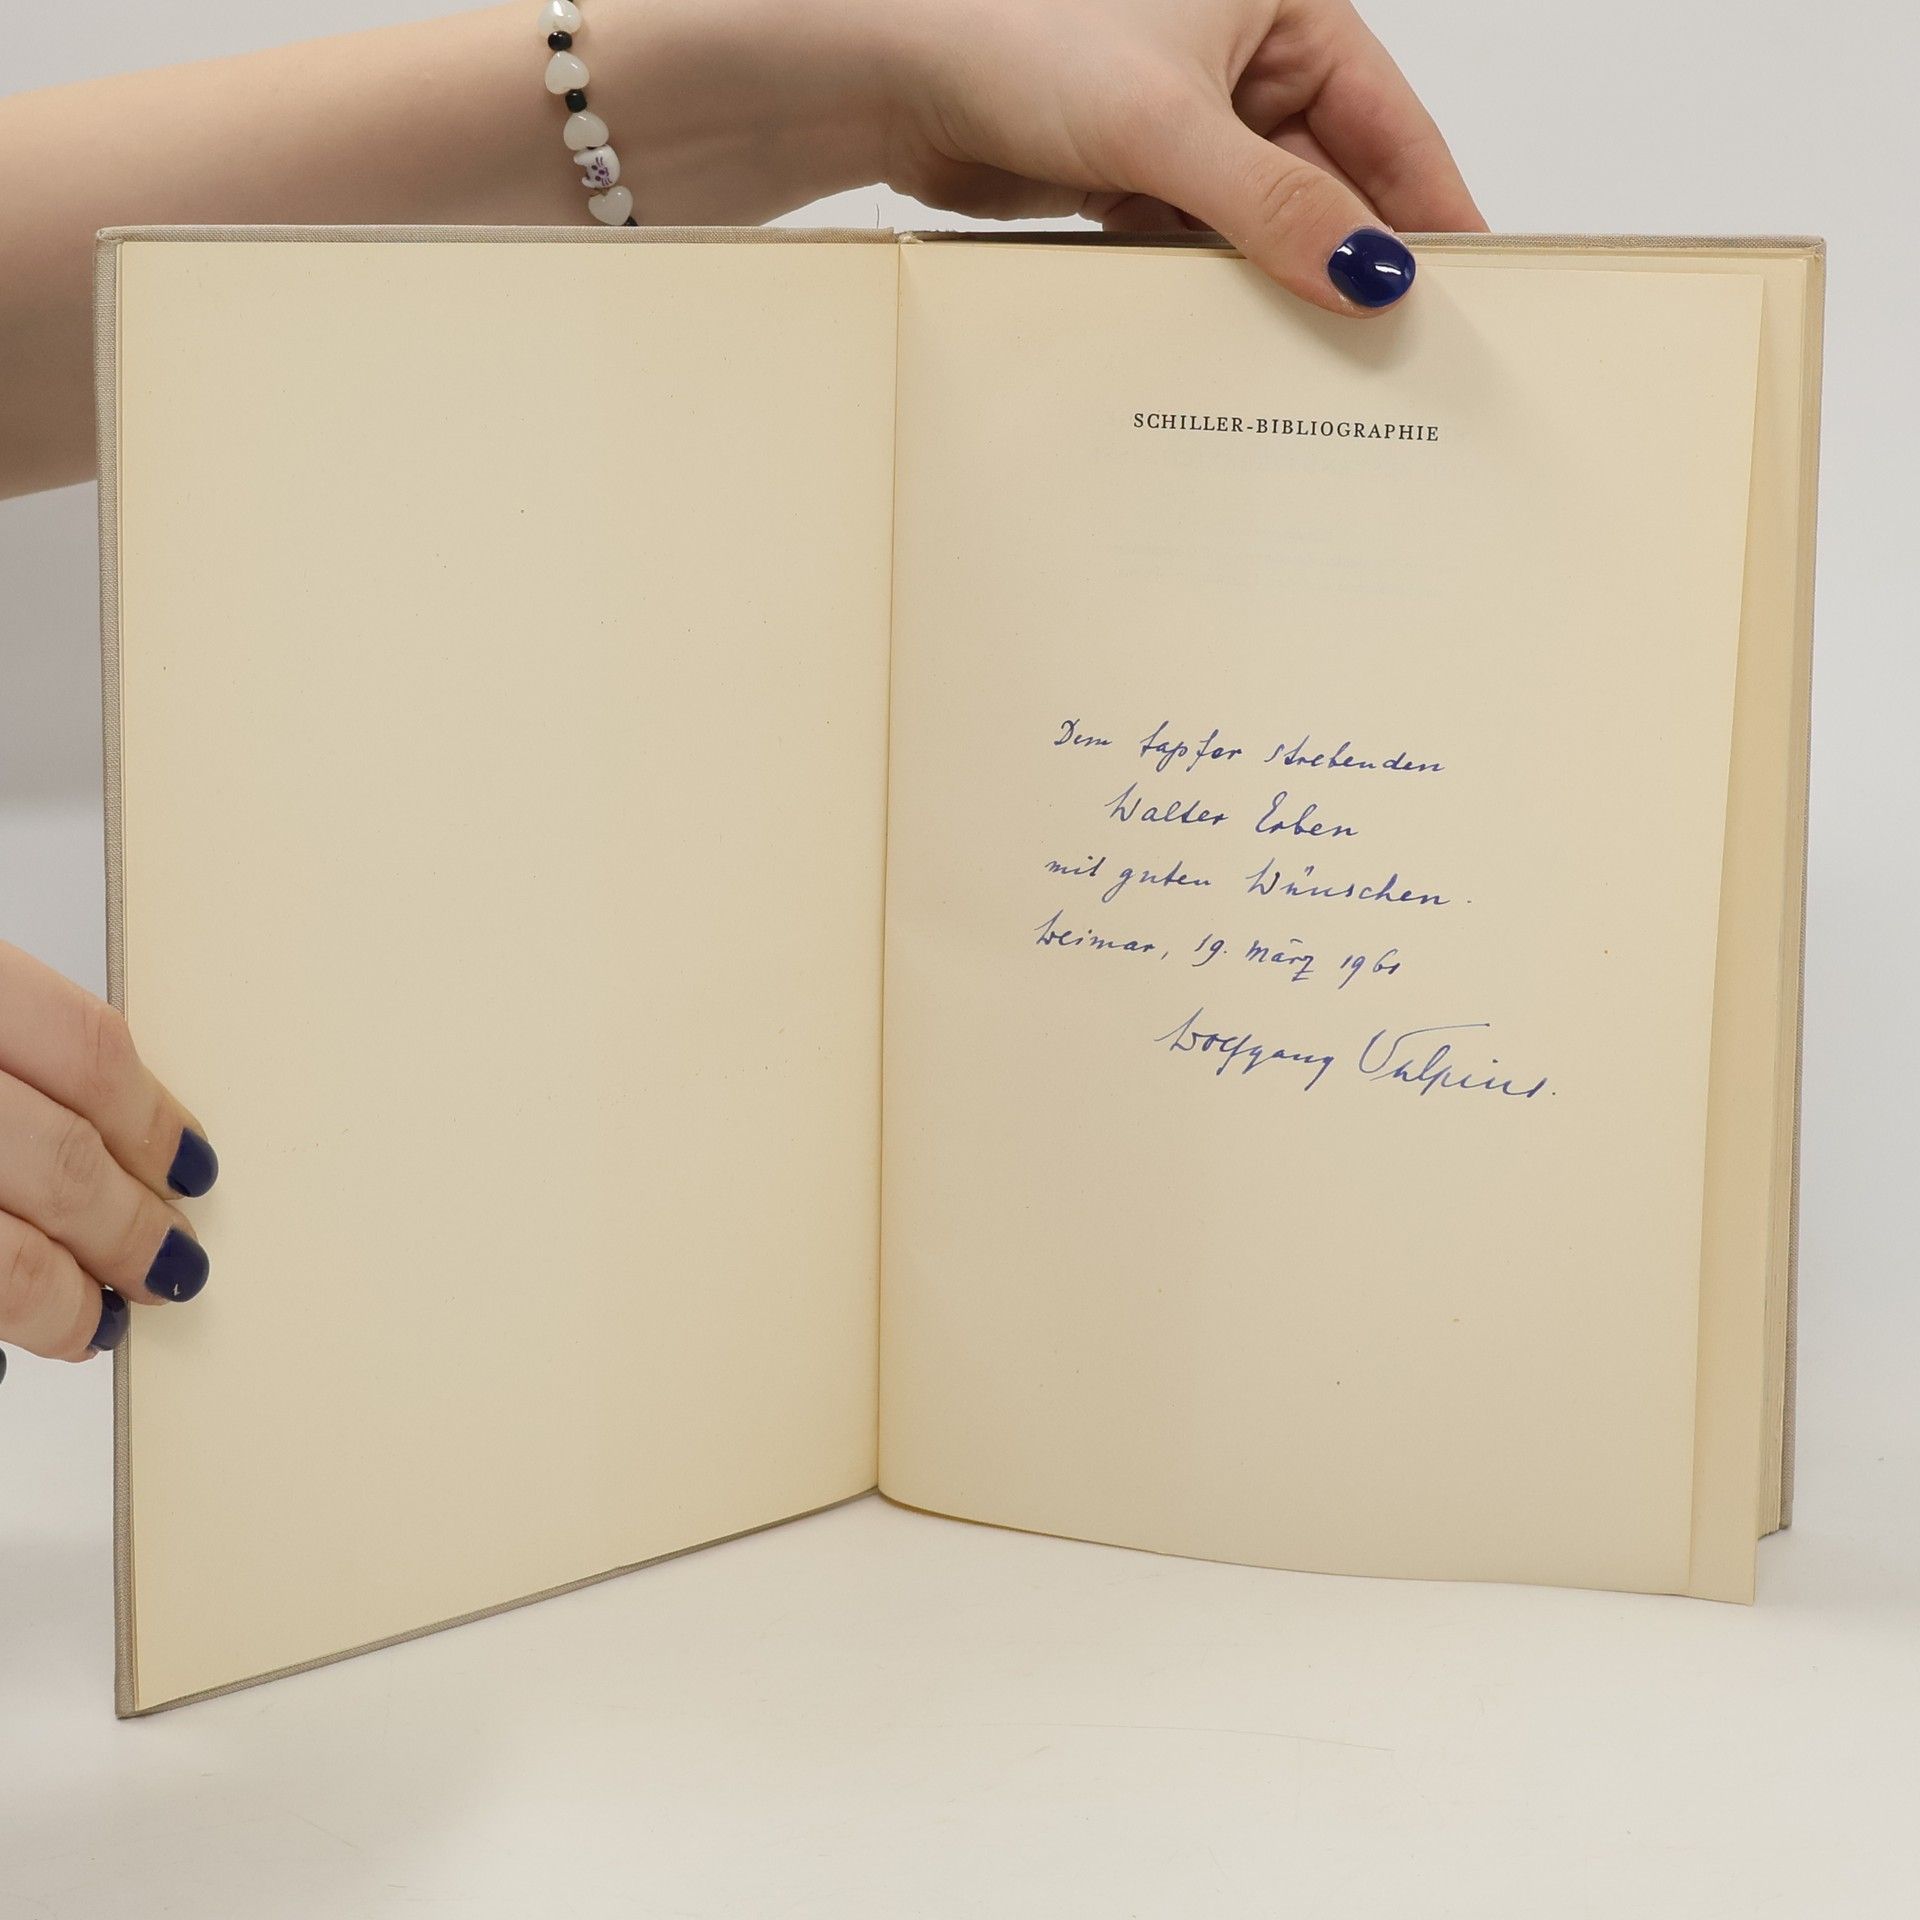 SCHILLER-BIBLIOGRAPHIE
Dem tapfer strebenden
Walter Erben
mit guten Wünschen.
Weimar, 19. März 1961
Wolfgang Vulpius.